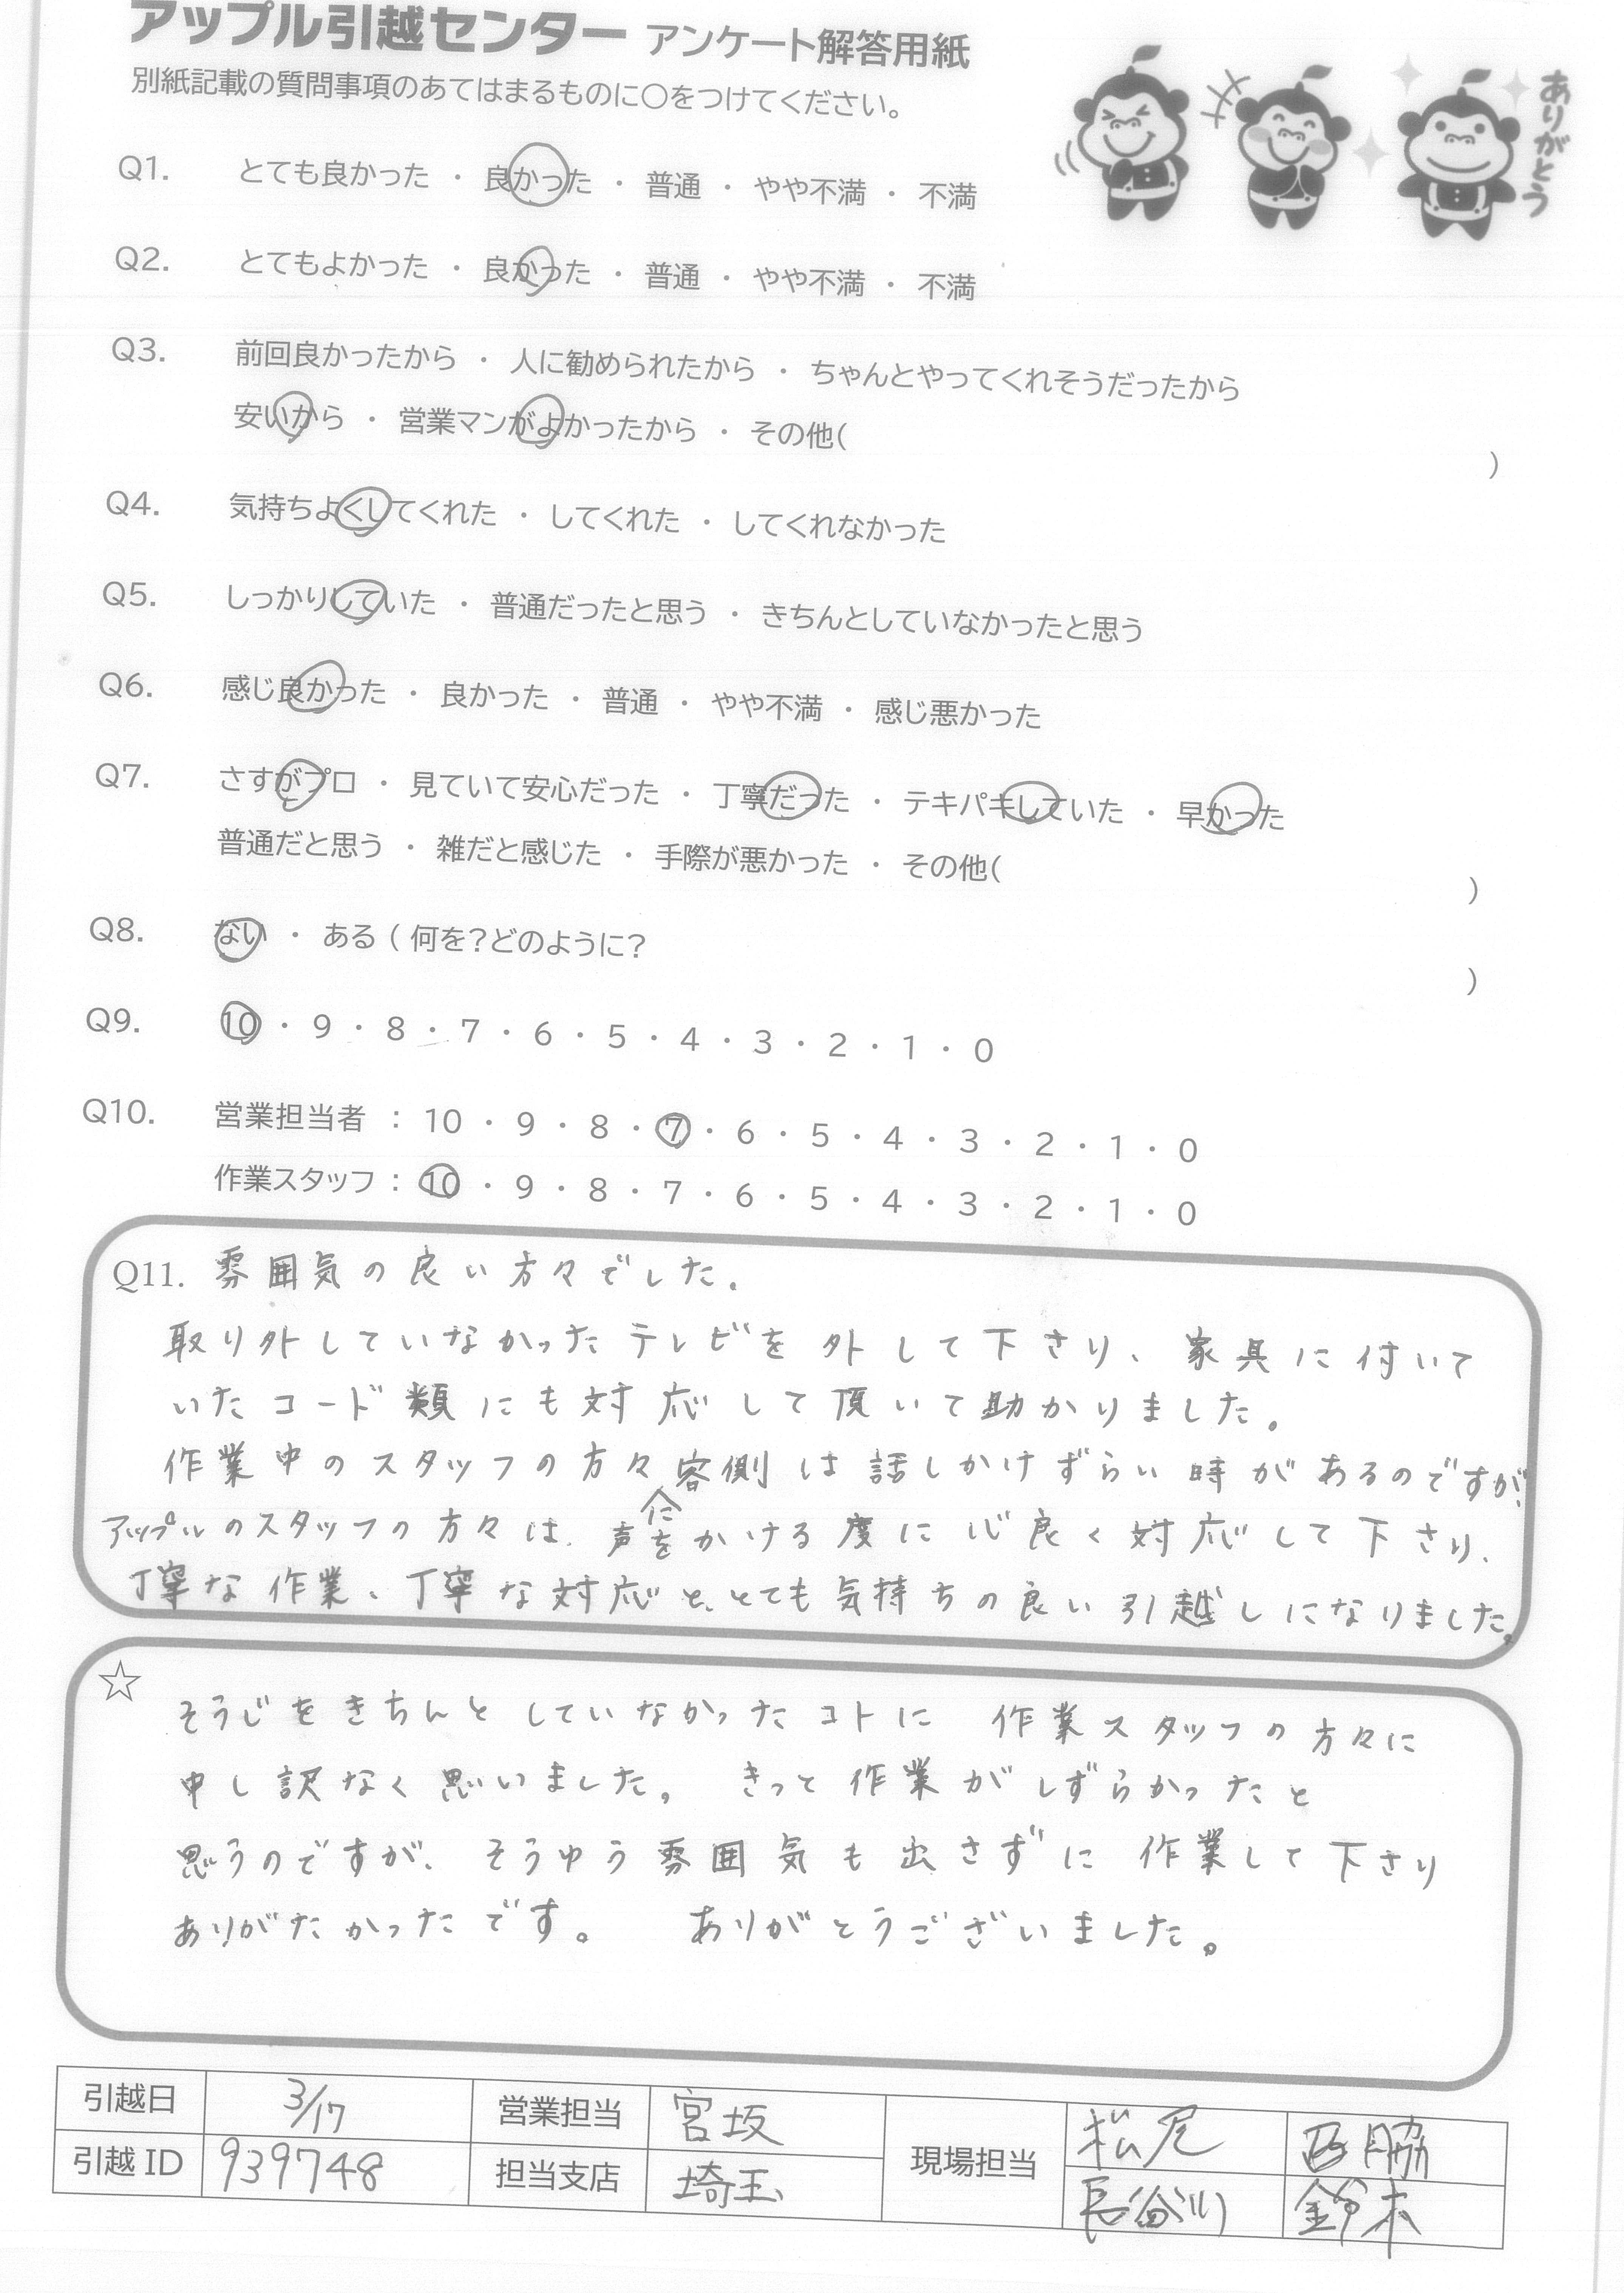 アップル引越センター アンケート解答用紙
別紙記載の質問事項のあてはまるものに○をつけてください。
ありがとう
Q1. とても良かった ・ 良かった ・ 普通 ・ やや不満 ・ 不満
Q2. とてもよかった ・ 良かった ・ 普通 ・ やや不満 ・ 不満
Q3. 前回良かったから ・ 人に勧められたから ・ ちゃんとやってくれそうだったから
安いから ・ 営業マンがよかったから ・ その他( )
Q4. 気持ちよくしてくれた ・ してくれた ・ してくれなかった
Q5. しっかりしていた ・ 普通だったと思う ・ きちんとしていなかったと思う
Q6. 感じ良かった ・ 良かった ・ 普通 ・ やや不満 ・ 感じ悪かった
Q7. さすがプロ ・ 見ていて安心だった ・ 丁寧だった ・ テキパキしていた ・ 早かった
普通だと思う ・ 雑だと感じた ・ 手際が悪かった ・ その他( )
Q8. ない ・ ある ( 何を?どのように? )
Q9. 10 ・ 9 ・ 8 ・ 7 ・ 6 ・ 5 ・ 4 ・ 3 ・ 2 ・ 1 ・ 0
Q10. 営業担当者 : 10 ・ 9 ・ 8 ・ 7 ・ 6 ・ 5 ・ 4 ・ 3 ・ 2 ・ 1 ・ 0
作業スタッフ : 10 ・ 9 ・ 8 ・ 7 ・ 6 ・ 5 ・ 4 ・ 3 ・ 2 ・ 1 ・ 0
Q11. 雰囲気の良い方々でした。
取り外していなかったテレビを外して下さり、家具に付いて
いたコード類にも対応して頂いて助かりました。
作業中のスタッフの方々に客側は話しかけずらい時があるのですが、
アップルのスタッフの方々は、声をかける度に心良く対応して下さり、
丁寧な作業、丁寧な対応と、とても気持ちの良い引越しになりました。
☆ そうじをきちんとしていなかったコトに 作業スタッフの方々に
申し訳なく思いました。 きっと作業がしずらかったと
思うのですが、そうゆう雰囲気も出さずに作業して下さり
ありがたかったです。 ありがとうございました。
引越日 3/17 営業担当 宮坂 現場担当 松尾 西脇
引越ID 939748 担当支店 埼玉 長谷川 鈴木